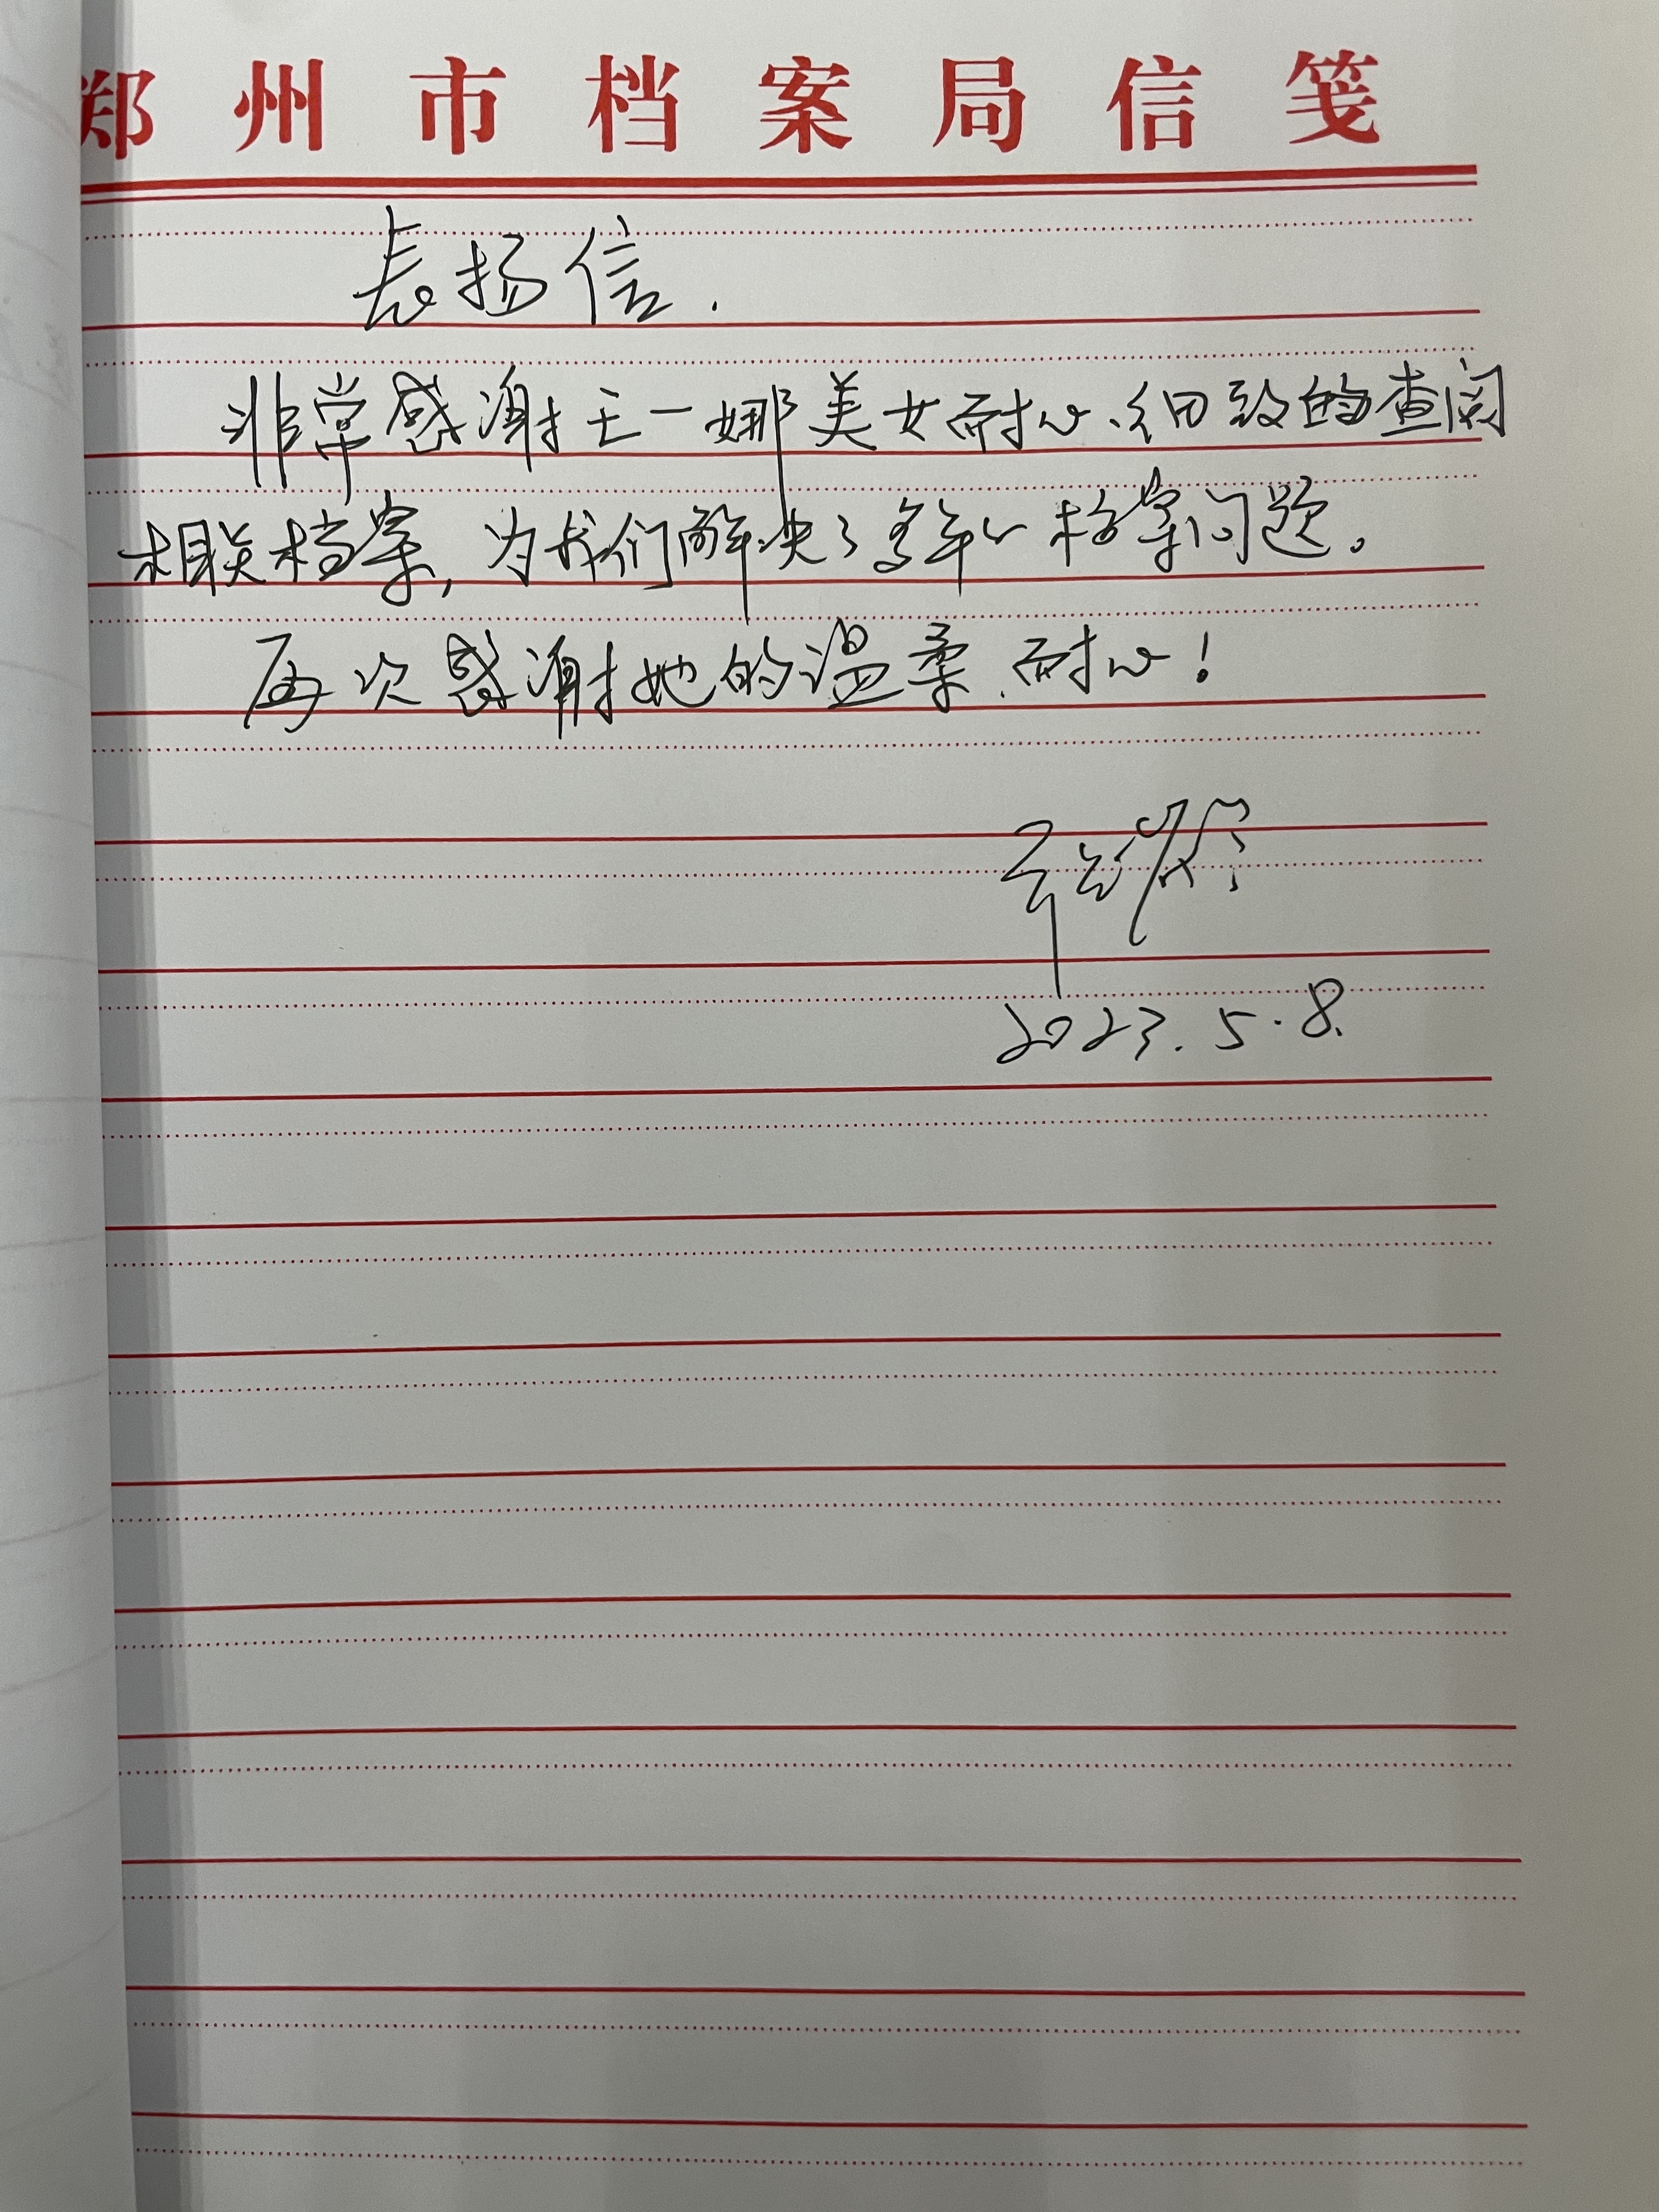 郑州市档案局信笺
表扬信.
非常感谢王一娜美女耐心、细致的查阅
相关档案,为我们解决了多年的档案问题。
再次感谢她的温柔、耐心!
2023.5.8.